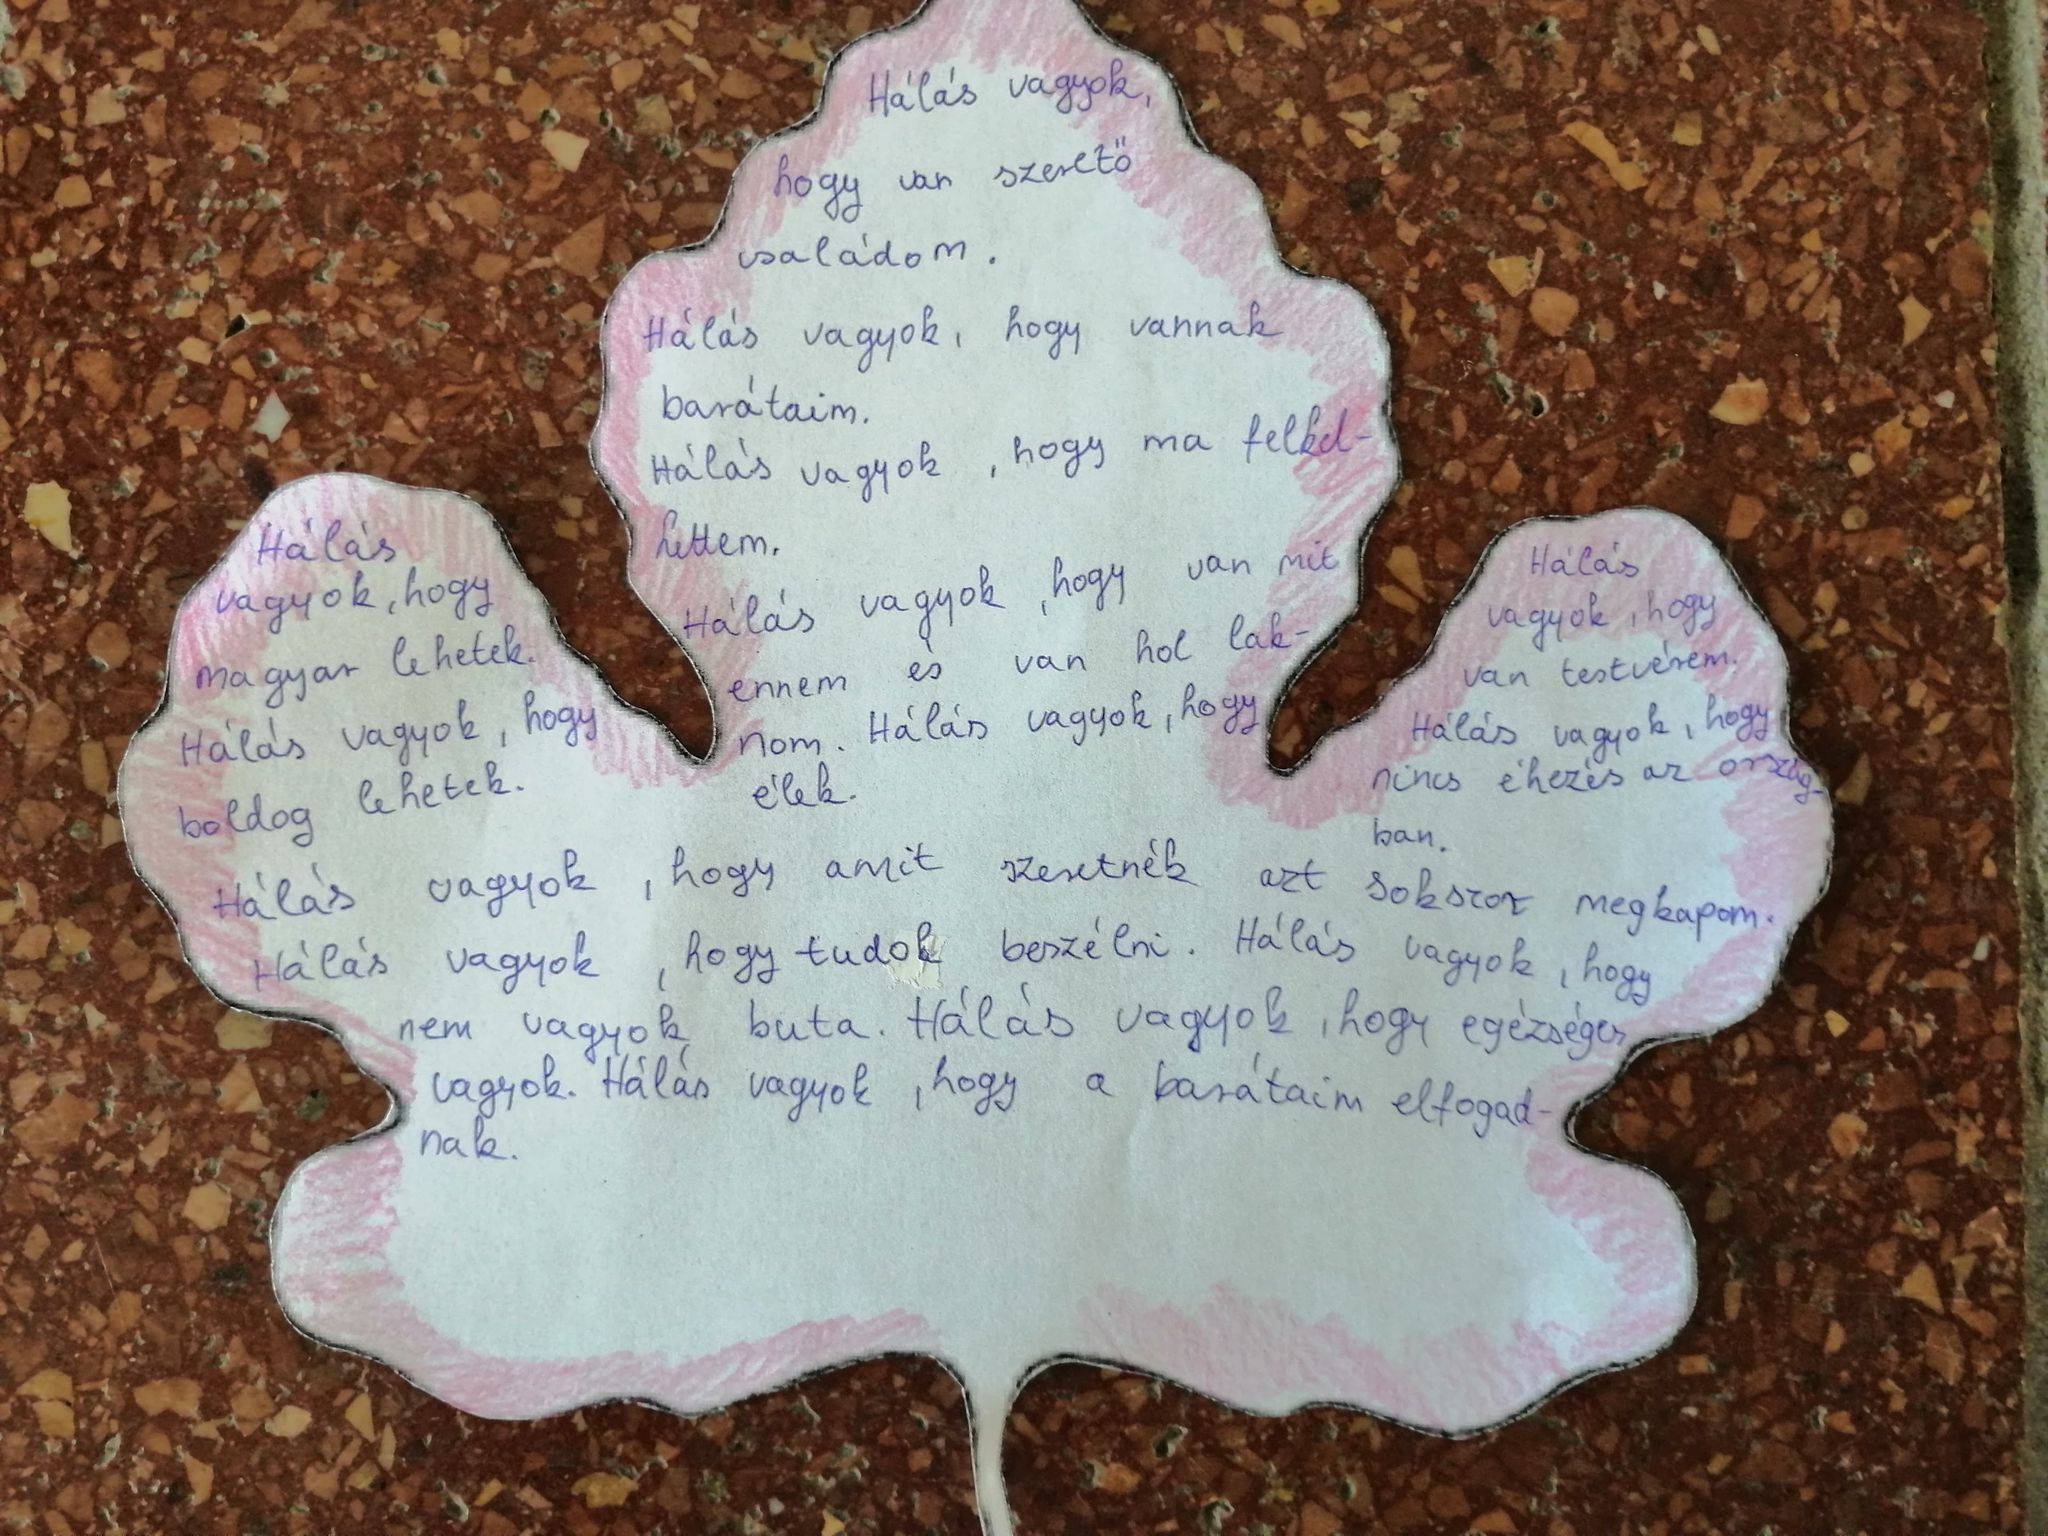 Hálás vagyok,
hogy van szerető
családom.
Hálás vagyok, hogy vannak
barátaim.
Hálás vagyok, hogy ma felkel-
hettem.
Hálás vagyok, hogy van mit
ennem és van hol lak-
nom. Hálás vagyok, hogy
élek.
Hálás
vagyok, hogy
magyar lehetek.
Hálás vagyok, hogy
boldog lehetek.
Hálás
vagyok, hogy
van testvérem.
Hálás vagyok, hogy
nincs éhezés az ország-
ban.
Hálás vagyok, hogy amit szeretnék azt sokszor megkapom.
Hálás vagyok, hogy tudok beszélni. Hálás vagyok, hogy
nem vagyok buta. Hálás vagyok, hogy egézséges
vagyok. Hálás vagyok, hogy a barátaim elfogad-
nak.